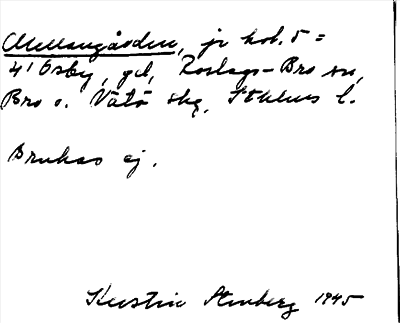 Mellangården, jr kol. 5 =
4' Ösby, gd, Roslags-Bro sn,
Bro o. Vätö skg, Sthlms l.
Brukas ej.
Kerstin Stenberg 1945